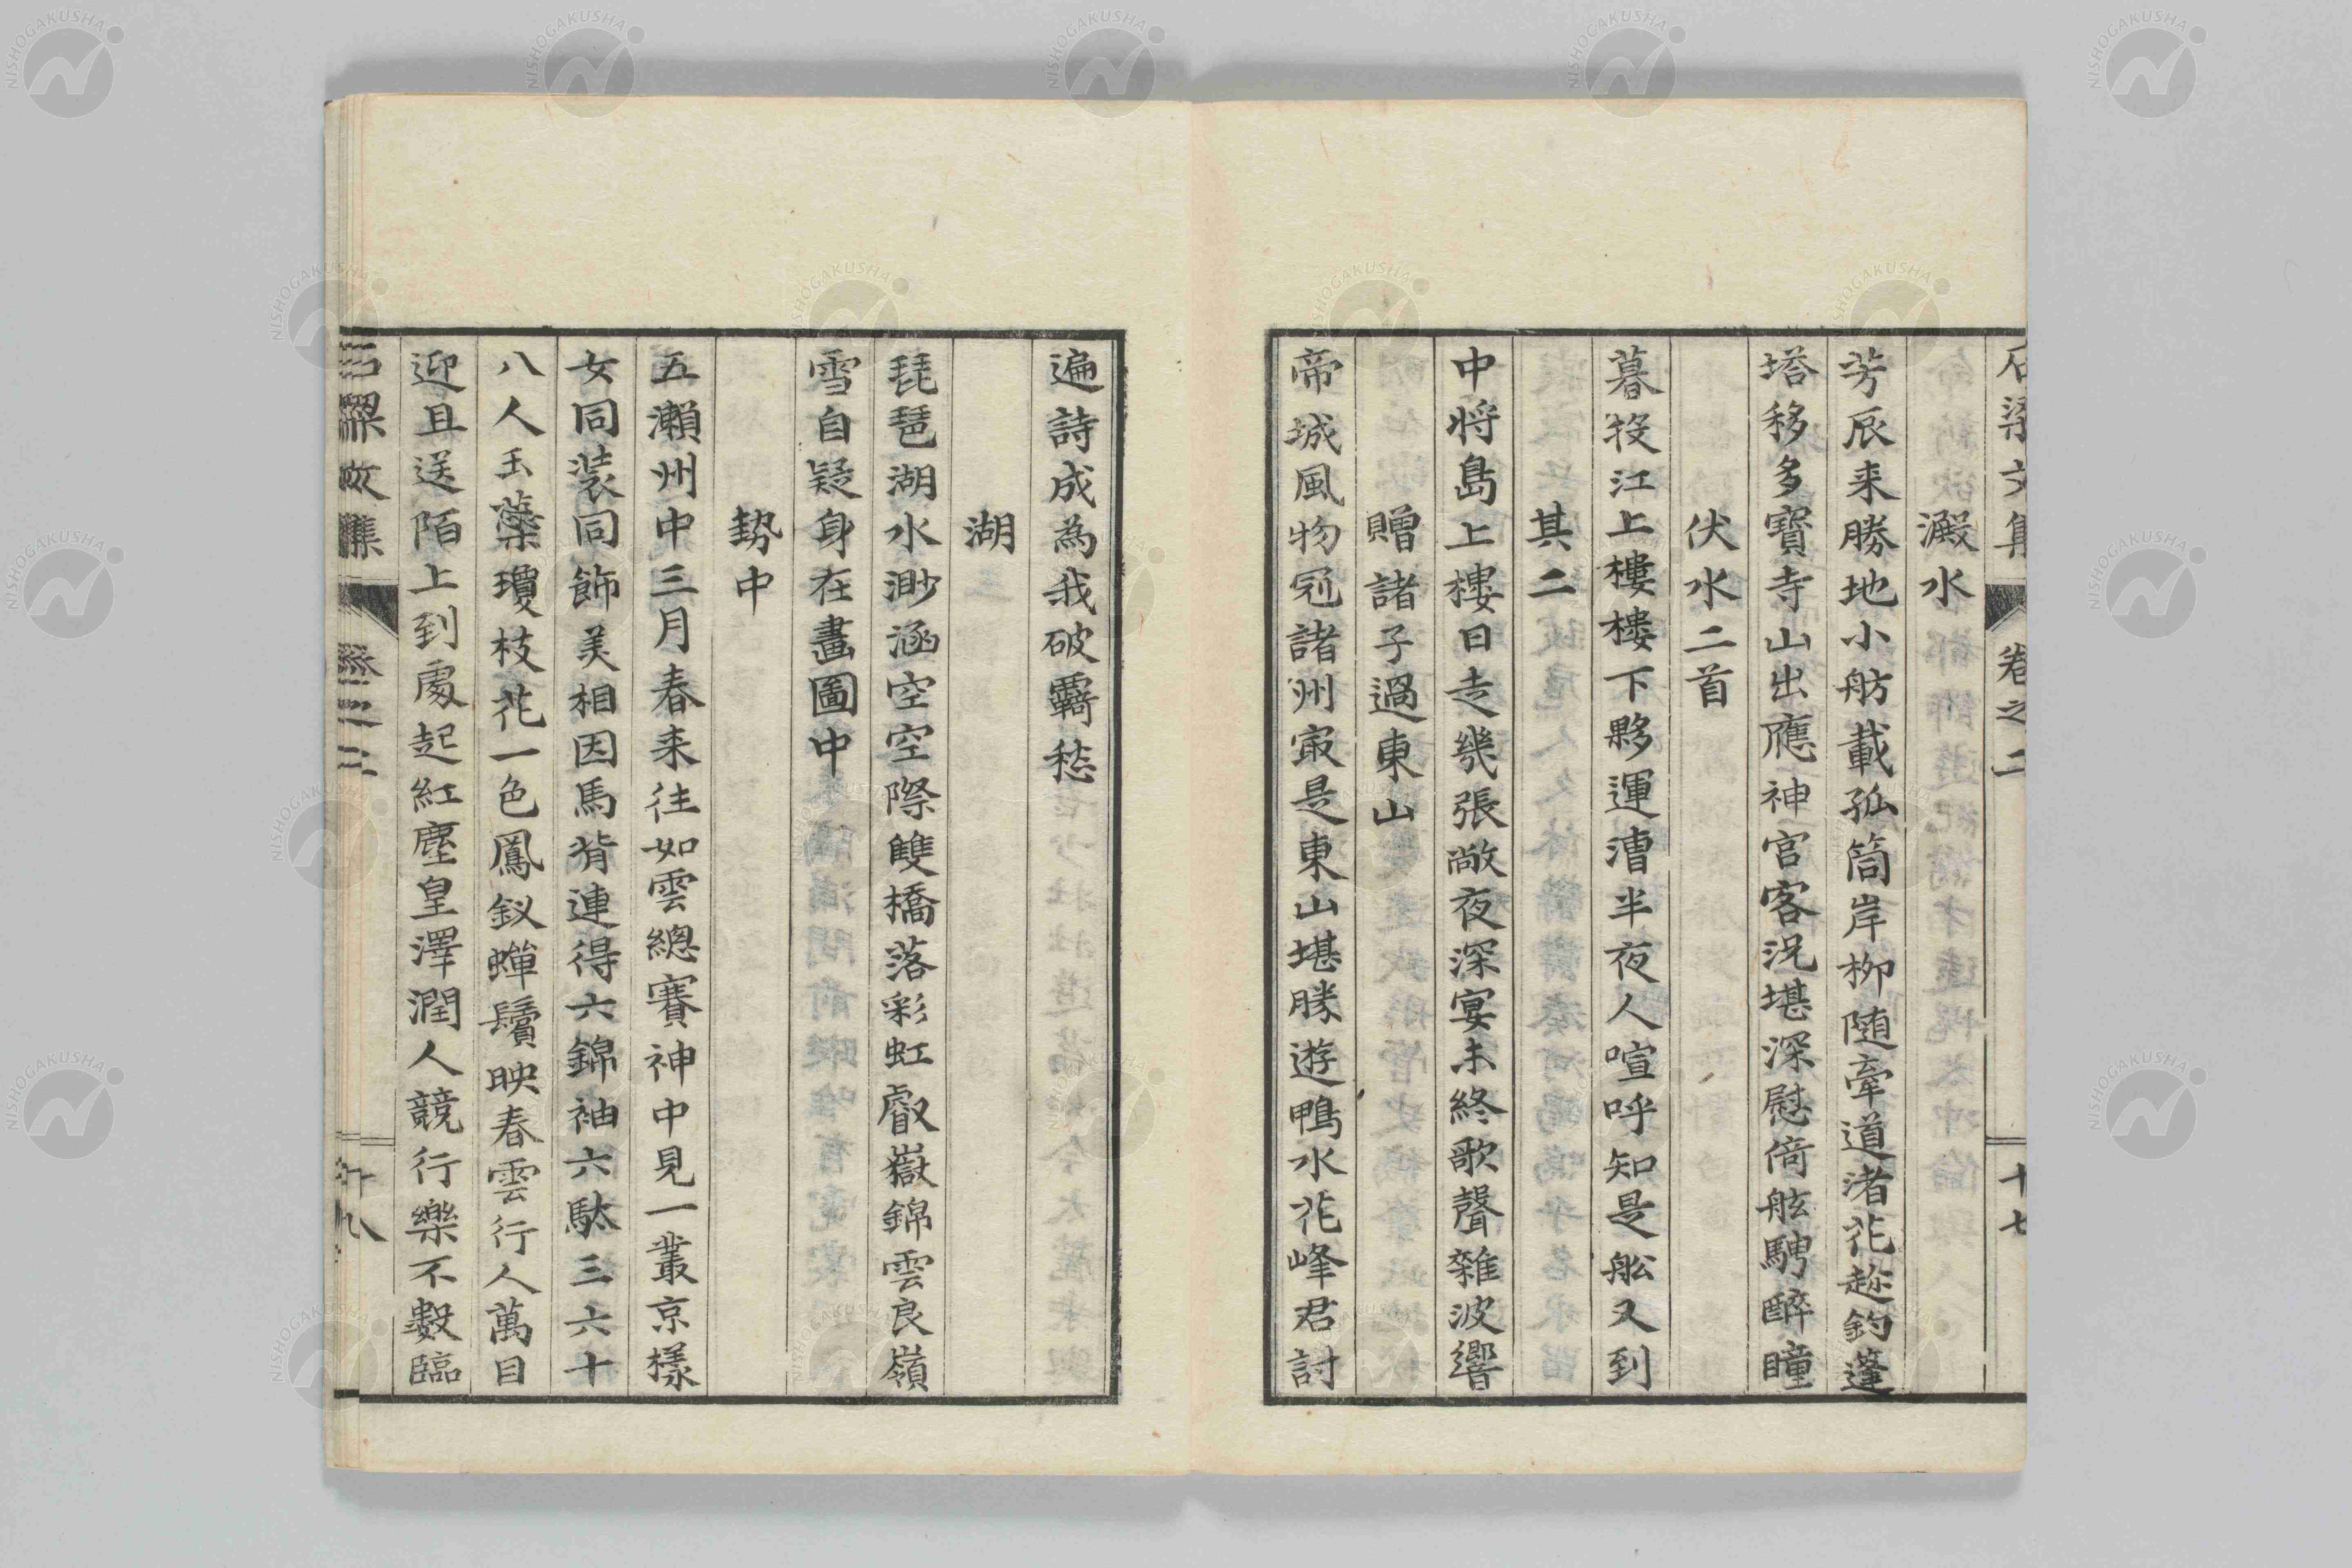 石梁文集 卷之二 十七
澱水
芳辰来勝地小舫載孤筒岸柳随牽道渚花趂釣蓬
塔移多寶寺山出應神宮客況堪深慰倚舷騁醉瞳
伏水二首
暮投江上樓樓下夥運漕半夜人喧呼知是舩又到
其二
中将島上樓日走幾張敞夜深宴未終歌聲雜波響
贈諸子過東山
帝城風物冠諸州㝡是東山堪勝遊鴨水花峰君討
遍詩成為我破覊愁
湖
琵琶湖水渺涵空空際雙橋落彩虹叡嶽錦雲良嶺
雪自疑身在畫圖中
勢中
五瀬州中三月春来往如雲總賽神中見一叢京樣
女同装同飾美相因馬背連得六錦袖六駄三六十
八人玉蘂瓊枝花一色鳳釵蟬鬢映春雲行人萬目
迎且送陌上到處起紅塵皇澤潤人競行樂不數臨
石梁文集 卷之二 十八
NISHOGAKUSHA